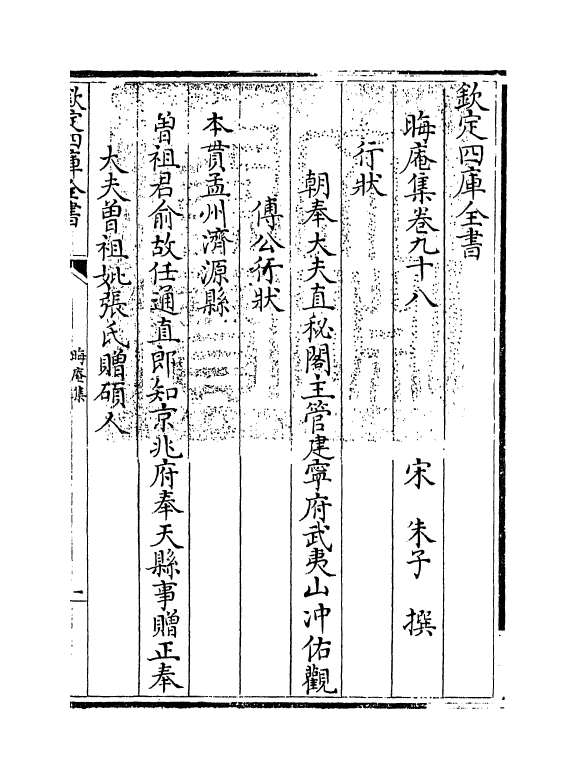 欽定四庫全書
晦庵集卷九十八　宋　朱子　撰
行狀
朝奉大夫直秘閣主管建寧府武夷山冲佑觀
傅公行狀
本貫孟州濟源縣
曾祖君俞故任通直郎知京兆府奉天縣事贈正奉
大夫曾祖妣張氏贈碩人
欽定四庫全書
晦庵集